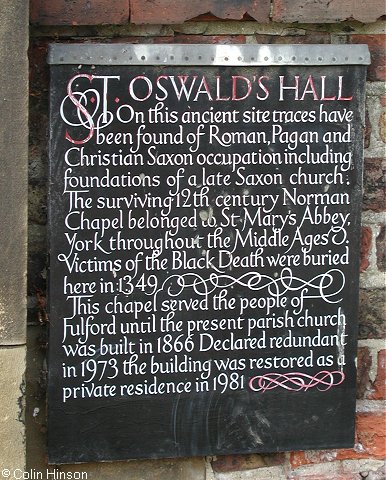 ST. OSWALD'S HALL
On this ancient site traces have
been found of Roman, Pagan and
Christian Saxon occupation including
foundations of a late Saxon church.
The surviving 12th century Norman
Chapel belonged to St. Mary's Abbey,
York throughout the Middle Ages.
Victims of the Black Death were buried
here in 1349
This chapel served the people of
Fulford until the present parish church
was built in 1866 Declared redundant
in 1973 the building was restored as a
private residence in 1981
© Colin Hinson